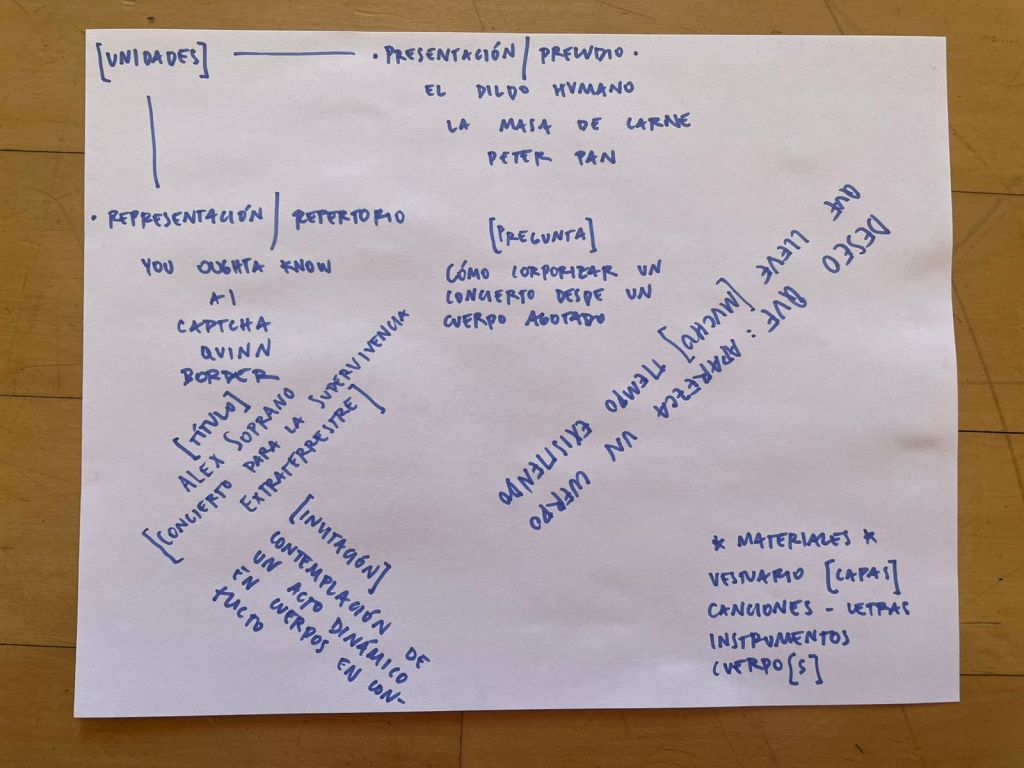 [UNIDADES]
· PRESENTACIÓN / PRELUDIO ·
EL DILDO HUMANO
LA MASA DE CARNE
PETER PAN
· REPRESENTACIÓN / REPERTORIO
YOU OUGHTA KNOW
AI
CAPTCHA
QUINN
BORDER
[PREGUNTA]
CÓMO CORPORIZAR UN
CONCIERTO DESDE UN
CUERPO AGOTADO
DESEO QUE : APAREZCA UN CUERPO
QUE LLEVE [MUCHO] TIEMPO EXISTIENDO
[TÍTULO]
ALEX SOPRANO
[CONCIERTO PARA LA SUPERVIVENCIA
EXTRATERRESTRE]
[INVITACIÓN]
CONTEMPLACIÓN DE
UN ACTO DINÁMICO
EN CUERPOS EN CON-
TACTO
* MATERIALES *
VESTUARIO [CAPAS]
CANCIONES - LETRAS
INSTRUMENTOS
CUERPO[S]